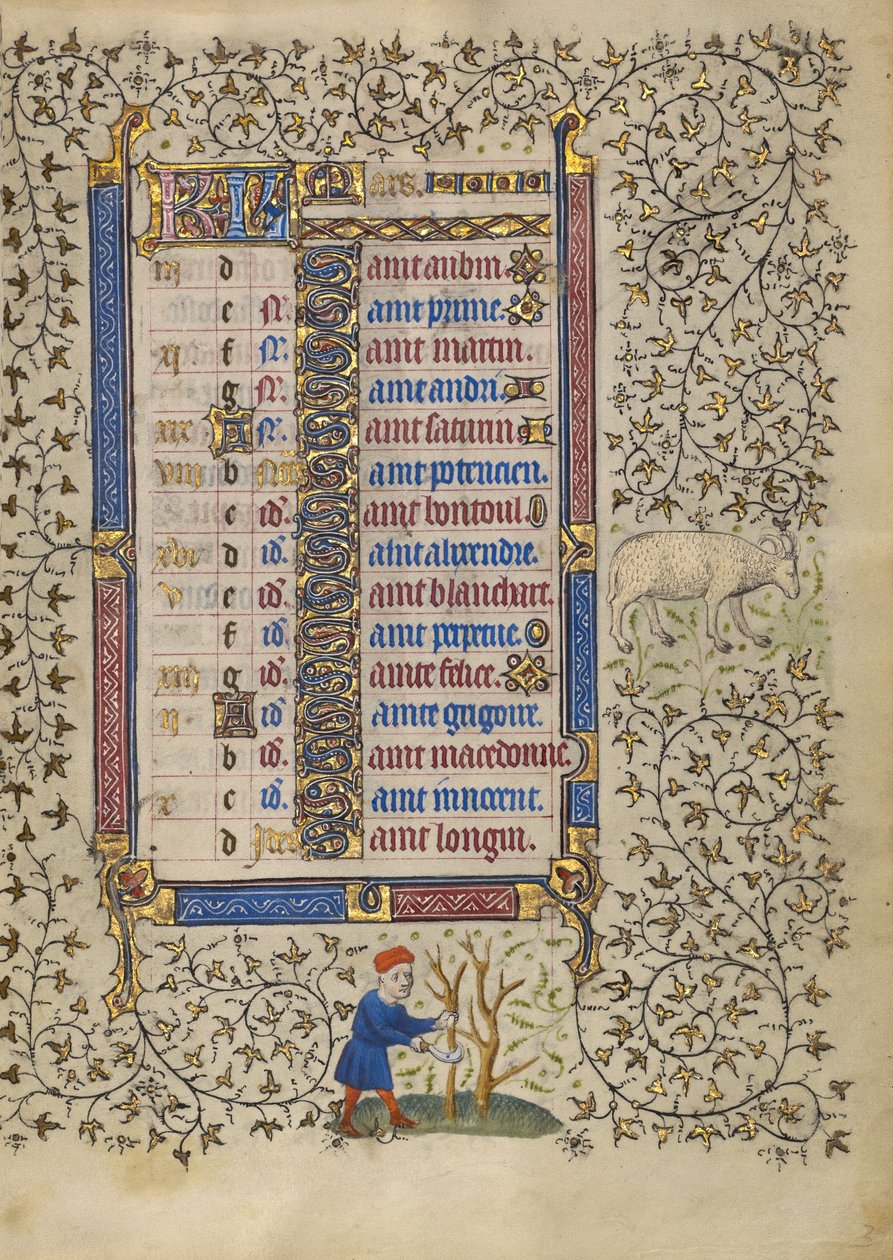 KL Mars.
iij d Saint aubin.
e N. Saint prime.
xj f N. Saint martin.
g N. Saint andri.
xix A N. Saint saturin.
viij b Nõs Saint potencien.
c id. Saint bontoul.
xvi d id. Saint alixendre.
v e id. Saint blanchart.
f id. Saint perpetue.
xiij g id. Sainte felice.
ij A id. Sainte grigoire.
b id. Saint macedonne.
x c id. Saint innocent.
d Ides Saint longin.